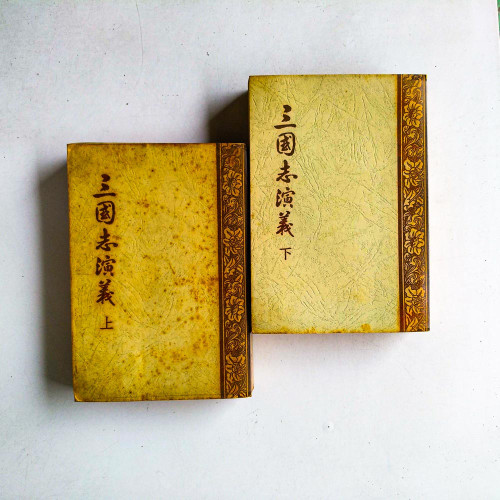 三國志演義
上
三國志演義
下